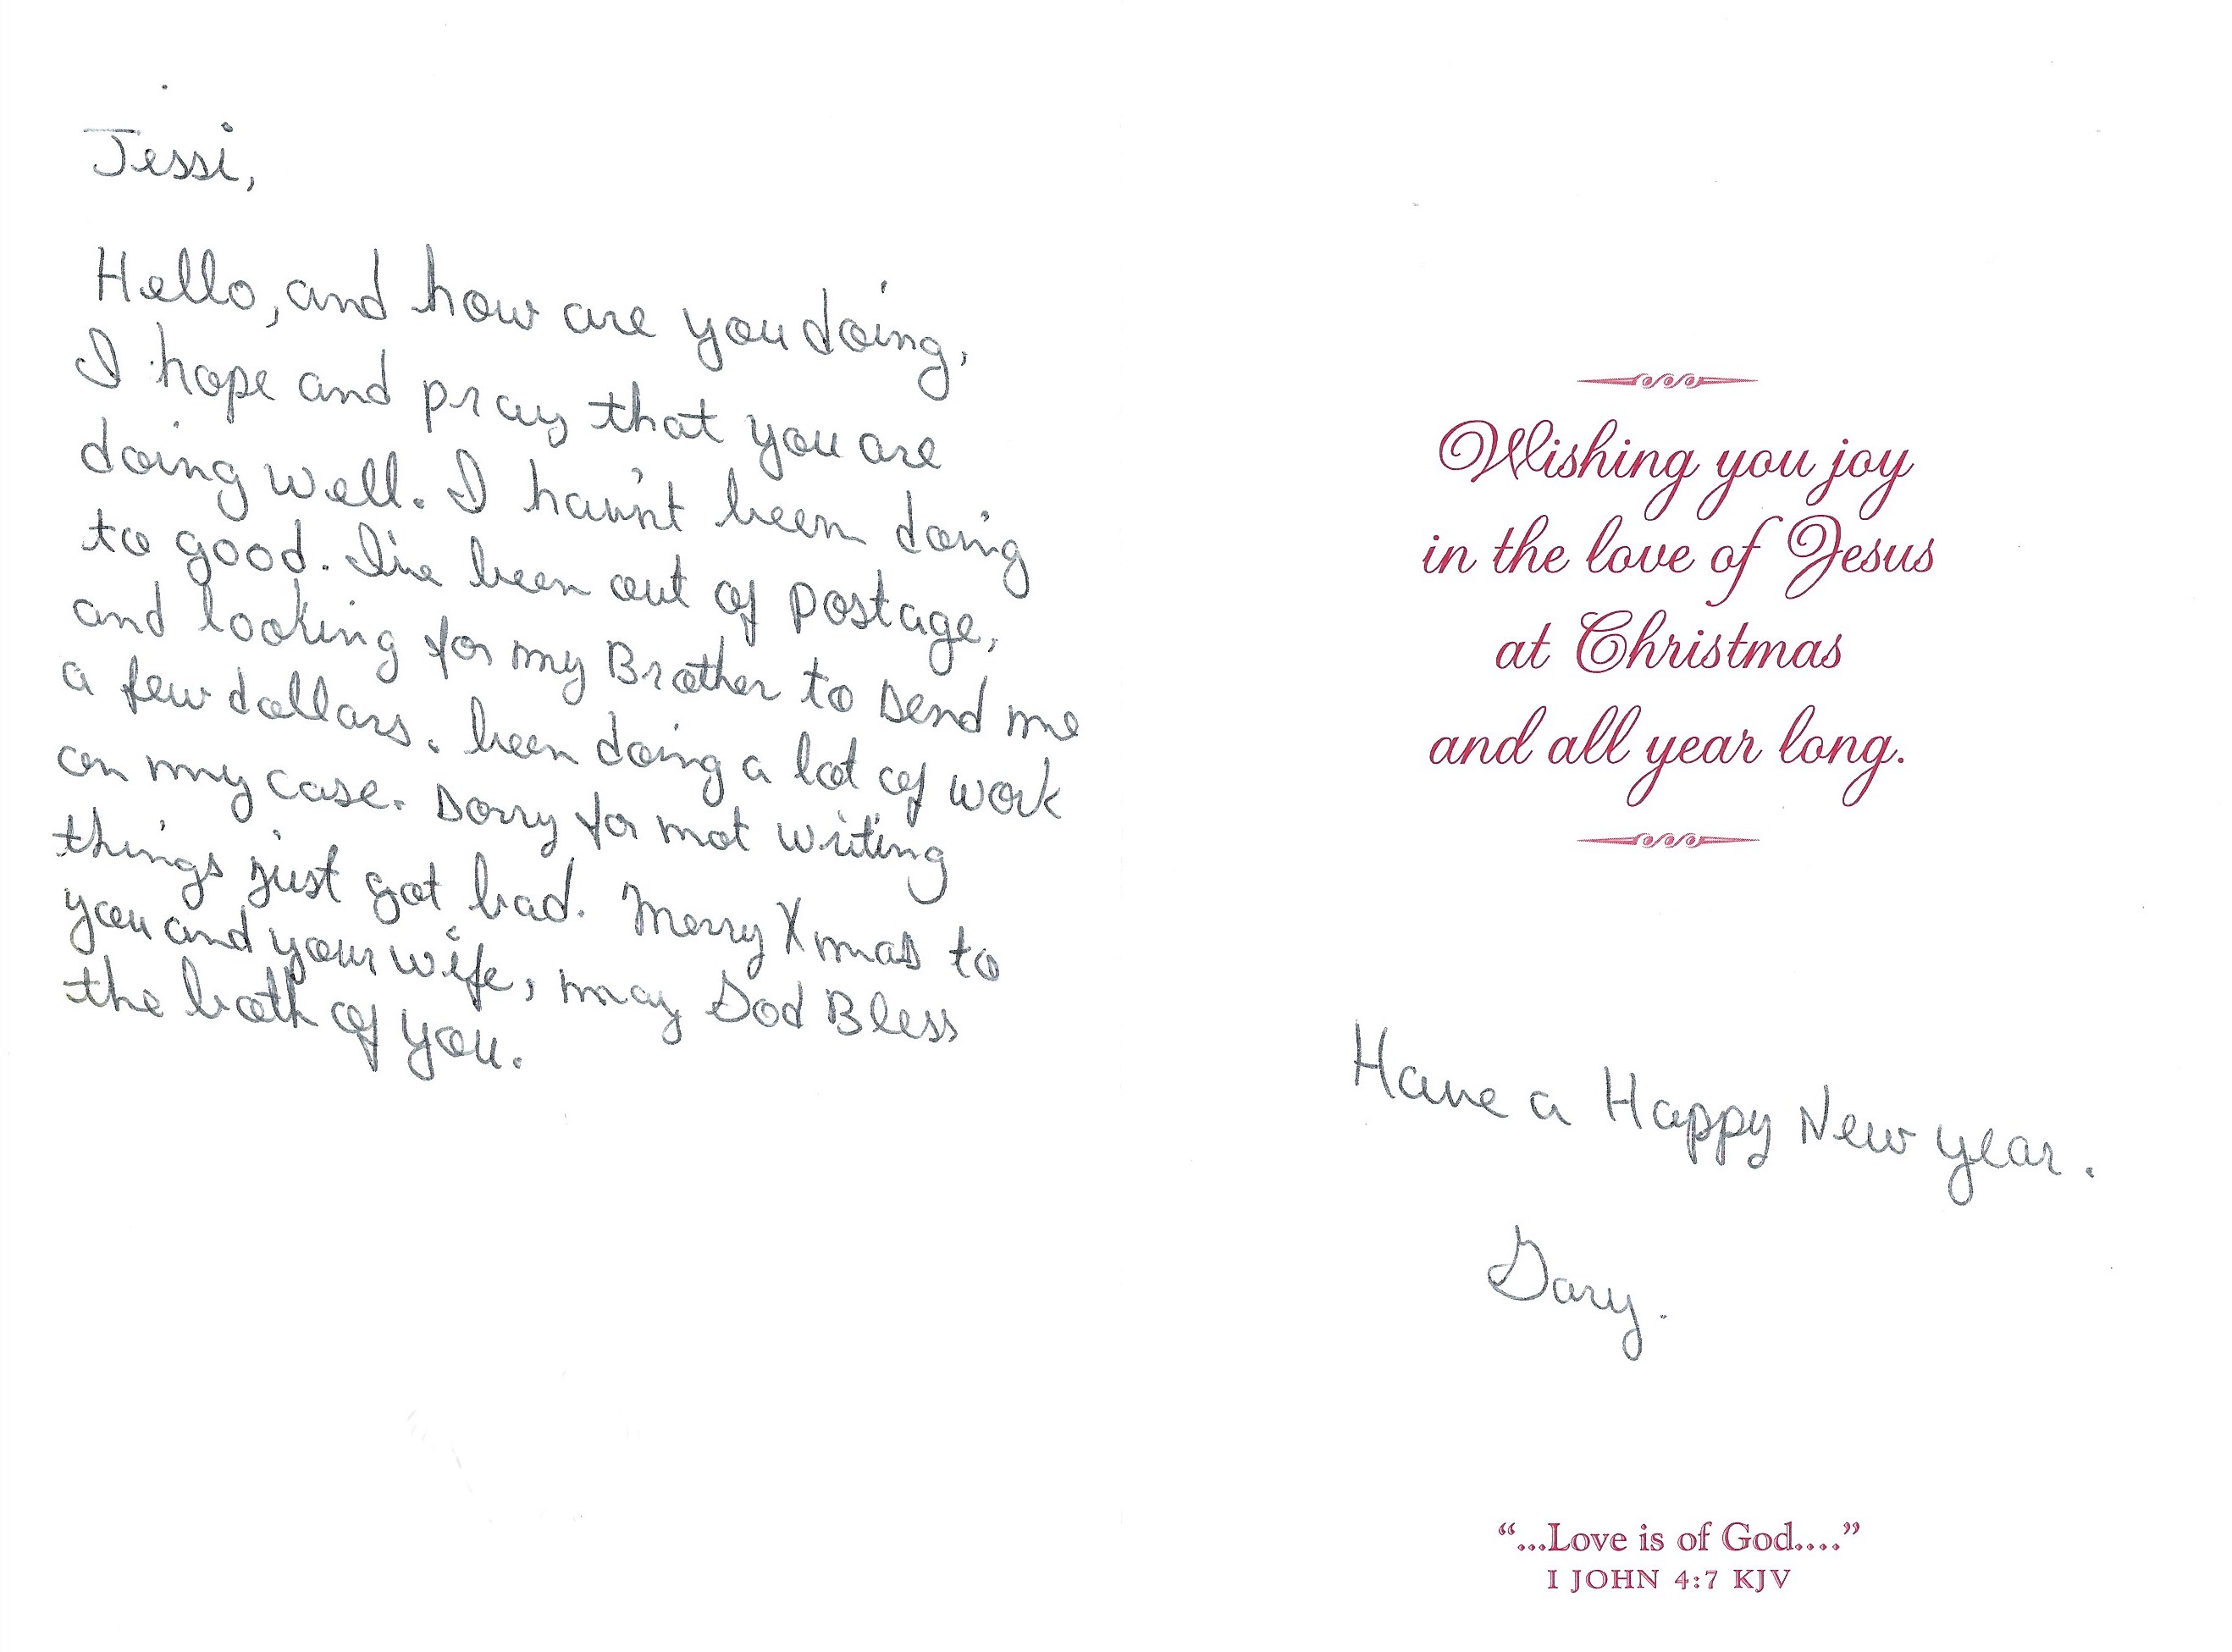 Jessi,
Hello, and how are you doing,
I hope and pray that you are
doing well. I hav'nt been doing
to good. I've been out of postage,
and looking for my Brother to send me
a few dollars. been doing a lot of work
on my case. Sorry for not writing
things just got bad. Merry Xmas to
you and your wife, may God Bless
the both of you.
Wishing you joy
in the love of Jesus
at Christmas
and all year long.
Have a Happy New year.
Gary.
“...Love is of God....”
I JOHN 4:7 KJV